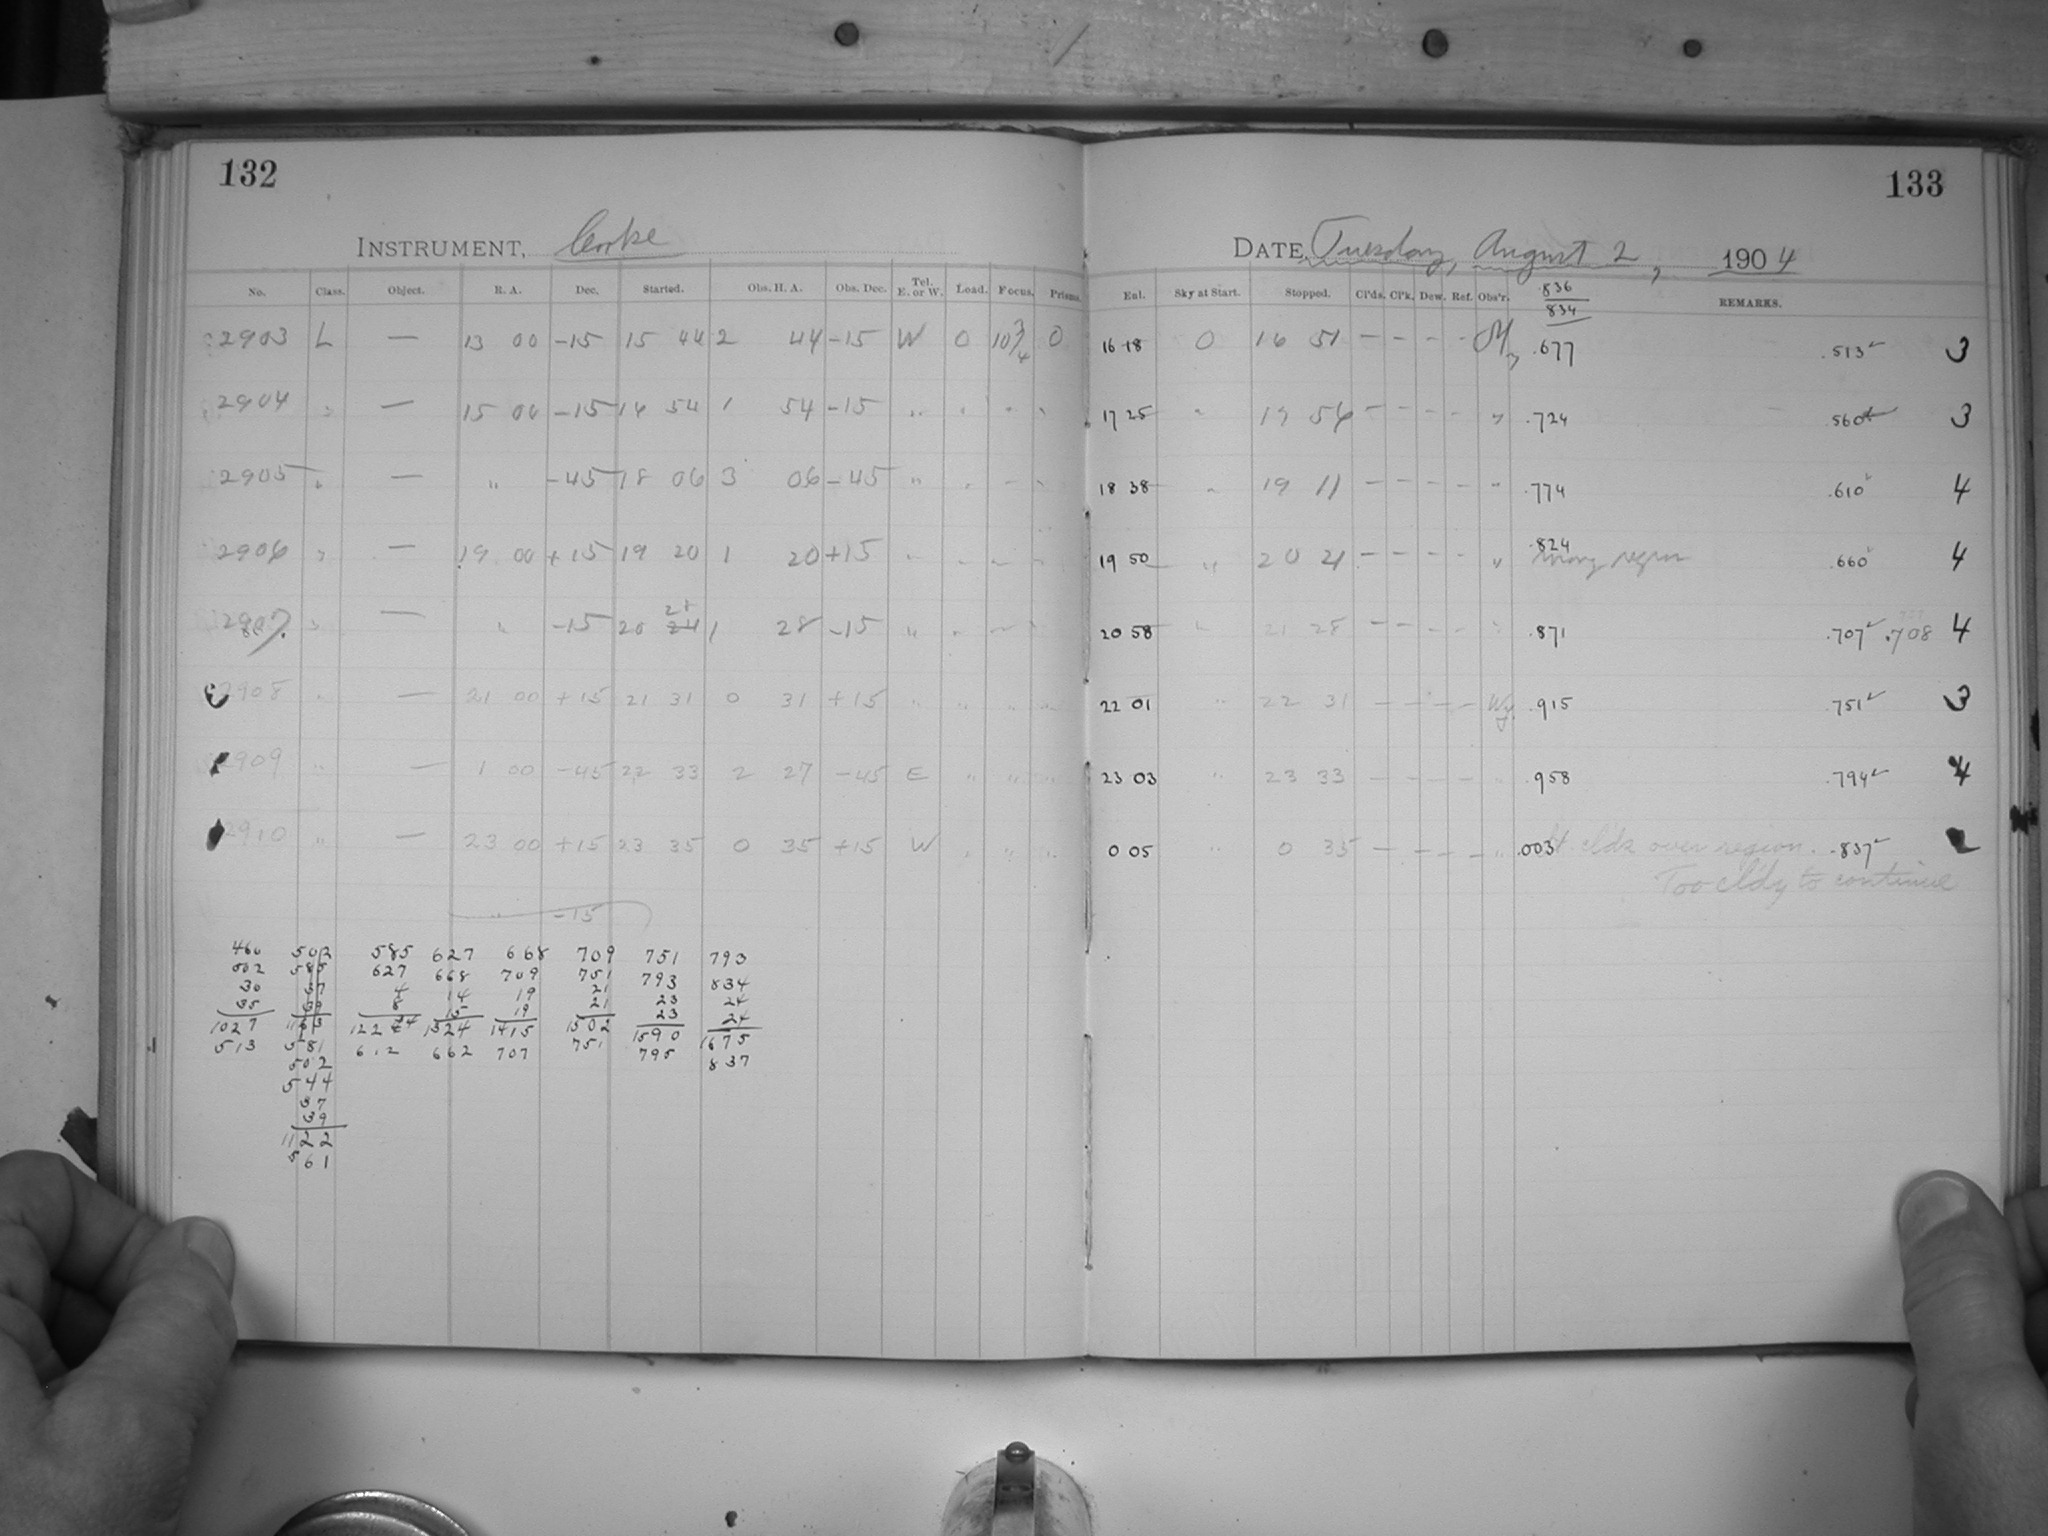 132
INSTRUMENT, Cooke
No. Class. Object. R. A. Dec. Started. Obs. H. A. Obs. Dec. Tel. E. or W. Load. Focus. Prisms.
2903 L — 13 00 -15 15 44 2 44 -15 W 0 10 3/4 0
2904 " — 15 00 -15 16 54 1 54 -15 " " " "
2905 " — " -45 18 06 3 06 -45 " " " "
2906 " — 19 00 +15 19 20 1 20 +15 " " " "
2907 " — " -15 20 28 1 28 -15 " " " "
2908 " — 21 00 +15 21 31 0 31 +15 " " " "
2909 " — 1 00 -45 22 33 2 27 -45 E " " "
2910 " — 23 00 +15 23 35 0 35 +15 W " " "
" -15
460 502 585 627 668 709 751 793
502 585 627 668 709 751 793 834
30 37 4 14 19 21 23 24
35 39 8 15 19 21 23 24
1027 1324 1415 1502 1590 1675
513 581 612 662 707 751 795 837
502
544
37
39
1122
561
133
DATE, Tuesday, August 2, 1904
Enl. Sky at Start. Stopped. Cl'ds. Cl'k. Dew. Ref. Obs'r. REMARKS.
836
834
16 18 0 16 51 — — - - .677 .513 3
17 25 " 17 56 - - - - " .724 .560 3
18 38 " 19 11 — - - - " .774 .610 4
19 50 " 20 21 - - - - " .824 .660 4
wrong region
20 58 " 21 28 - - - - " .871 .707 .708 4
22 01 " 22 31 - - - - Wy. .915 .751 3
23 03 " 23 33 - - - - " .958 .794 4
0 05 " 0 35 - - - - " .003 cldz over region. .837 2
Too cldy to continue